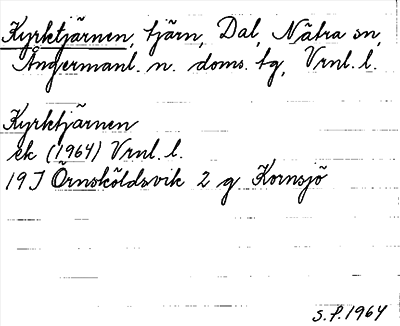 Kyrktjärnen, tjärn, Dal, Nätra sn,
Ångermanl. n. doms. tg, Vrnl. l.
Kyrktjärnen
ek (1964) Vrnl. l.
19 J Örnsköldsvik 2 g Kornsjö
S.P. 1964